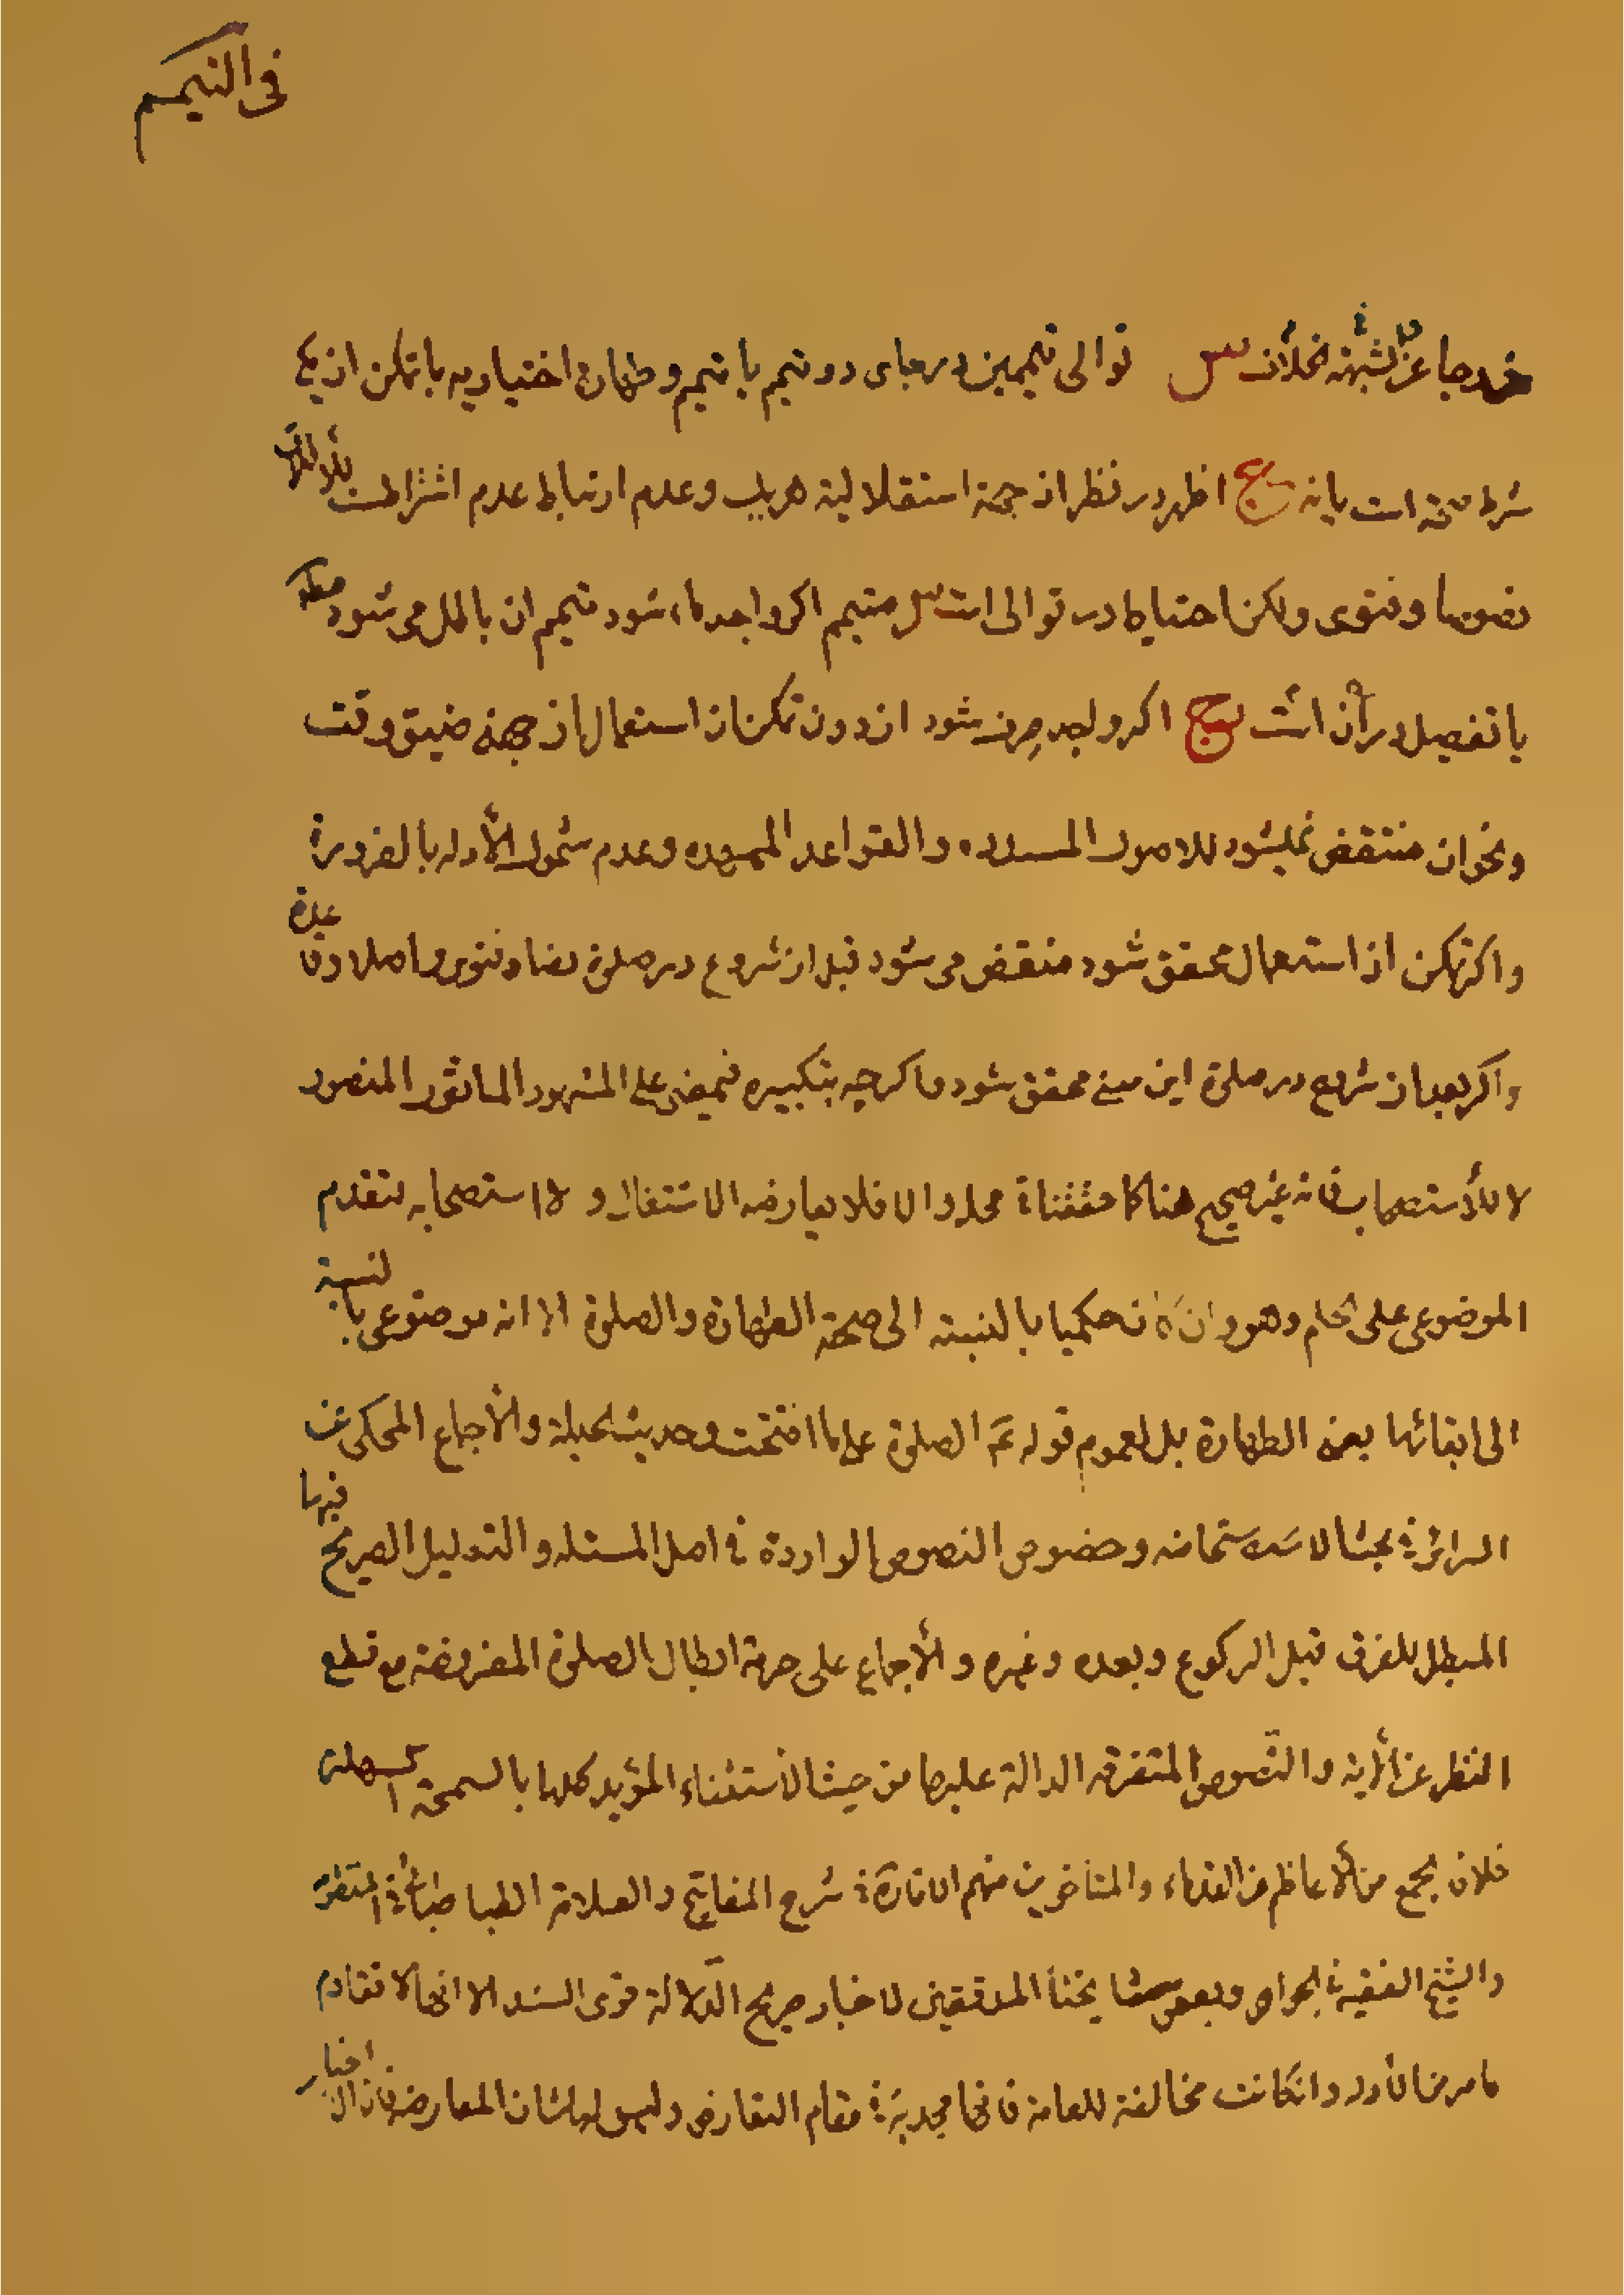 فی التیمم
خروجا عن شبهة الخلاف س توالی تیممین در جای دو تیمم یا تیمم و طهارة اختیاریه با تمکن از یک
شرط صحة است یا نه ج اظهر در نظر از جهة استقلالیة هر یک و عدم ارتباط عدم اشتراطست للاطلاق
نصوصا و فتوی ولکن احتیاط در توالی است س متیمم اکر واجد ماء شود تیمم ان باطل می شود مطلقا
یا تفصیل در آن است ج اکر واجد صرف شود از دون تمکن از استعمال از جهة ضیق وقت
و نحو ان منتقض نمیشود للاصول المسدده و القواعد الممهده و عدم شمول الأدله بالضرورة
و اکر تمکن از استعمال محقق شود منتقض می شود قبل از شروع در صلوة نصا و فتوی و اصلا و قاعدة
و اکر بعد از شروع در صلوة این معنی محقق شود و اکرچه بتکبیره فیمضی علی المشهور الماثور المنصور
لا للأستصحاب فانه غیر صحیح هنا کما حققناه فی محله و الا فلا یعارضه الاشتغال و لا استصحابه لتقدم
الموضوعی علی الحکم و هو و ان کان حکمیا بالنسبة الی صحة الطهارة و الصلوة الا انه موضوعی بالنسبة
الی ابقائها بهذه الطهارة بل لعموم قوله ع الصلوة علی ما افتتحت و حدیث الحیلة و الأجماع المحکی عن
السرائر فی بحث الاستحاضه و خصوص النصوص الواردة فی اصل المسئله و التعلیل الصریح فیها
المبطل للفرق قبل الرکوع و بعده و غیره و الأجماع علی حرمة ابطال الصلوة المفروضة مع قطع
النظر عن الأیة و النصوص المتفرقه الدالة علیها من حیث الأستثناء المؤید کلها بالسمحة السهلة
خلاف لجمع من الأعاظم من القدماء و المتأخرین منهم الاقا ره فی شرح المفاتیح و العلامة الطباطبائی فی
و الشیخ الفقیه فی الجواهر و بعض مشایخنا المدققین لاخبار صریح الدلالة قوی السند الا انها لا تقاوم
ما مر من الأدلة و ان کانت مخالفة للعامة فانها مجدیة فی مقام التعارض و لیس لها شان المعارضه فان الاخبار